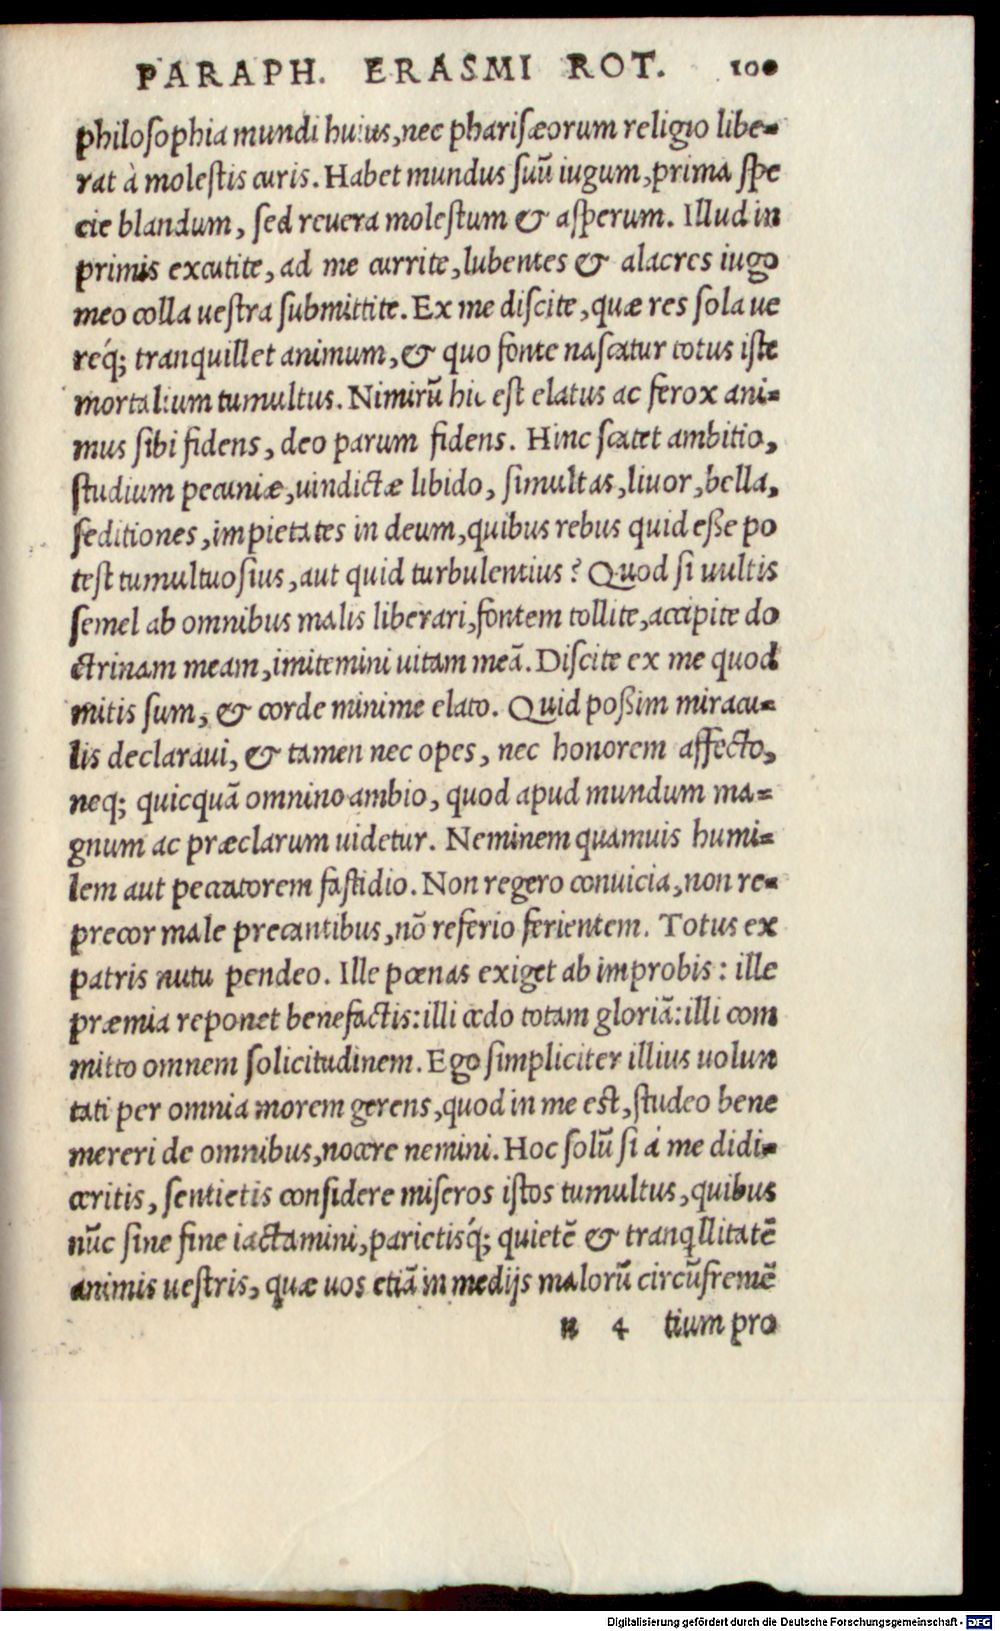 PARAPH. ERASMI ROT. 100
philosophia mundi huius, nec pharisæorum religio libe=
rat à molestis curis. Habet mundus suū iugum, prima spe
cie blandum, sed reuera molestum & asperum. Illud in
primis excutite, ad me currite, lubentes & alacres iugo
meo colla uestra submittite. Ex me discite, quæ res sola ue
réq; tranquillet animum, & quo fonte nascatur totus iste
mortalium tumultus. Nimirū hic est elatus ac ferox ani=
mus sibi fidens, deo parum fidens. Hinc scatet ambitio,
studium pecuniæ, uindictæ libido, simultas, liuor, bella,
seditiones, impietates in deum, quibus rebus quid eße po
test tumultuosius, aut quid turbulentius? Quod si uultis
semel ab omnibus malis liberari, fontem tollite, accipite do
ctrinam meam, imitemini uitam meā. Discite ex me quod
mitis sum, & corde minime elato. Quid poßim miracu=
lis declaraui, & tamen nec opes, nec honorem affecto,
neq; quicquā omnino ambio, quod apud mundum ma=
gnum ac præclarum uidetur. Neminem quamuis humi=
lem aut peccatorem fastidio. Non regero conuicia, non re=
precor male precantibus, nō referio ferientem. Totus ex
patris nutu pendeo. Ille pœnas exiget ab improbis: ille
præmia reponet benefactis: illi cedo totam gloriā: illi com
mitto omnem solicitudinem. Ego simpliciter illius uolun
tati per omnia morem gerens, quod in me est, studeo bene
mereri de omnibus, nocere nemini. Hoc solū si à me didi=
ceritis, sentietis considere miseros istos tumultus, quibus
nūc sine fine iactamini, parietisq́; quietē & tranqllitatē
animis uestris, quæ uos etiā in medijs malorū circūfremē
n 4 tium pro
Digitalisierung gefördert durch die Deutsche Forschungsgemeinschaft - DFG